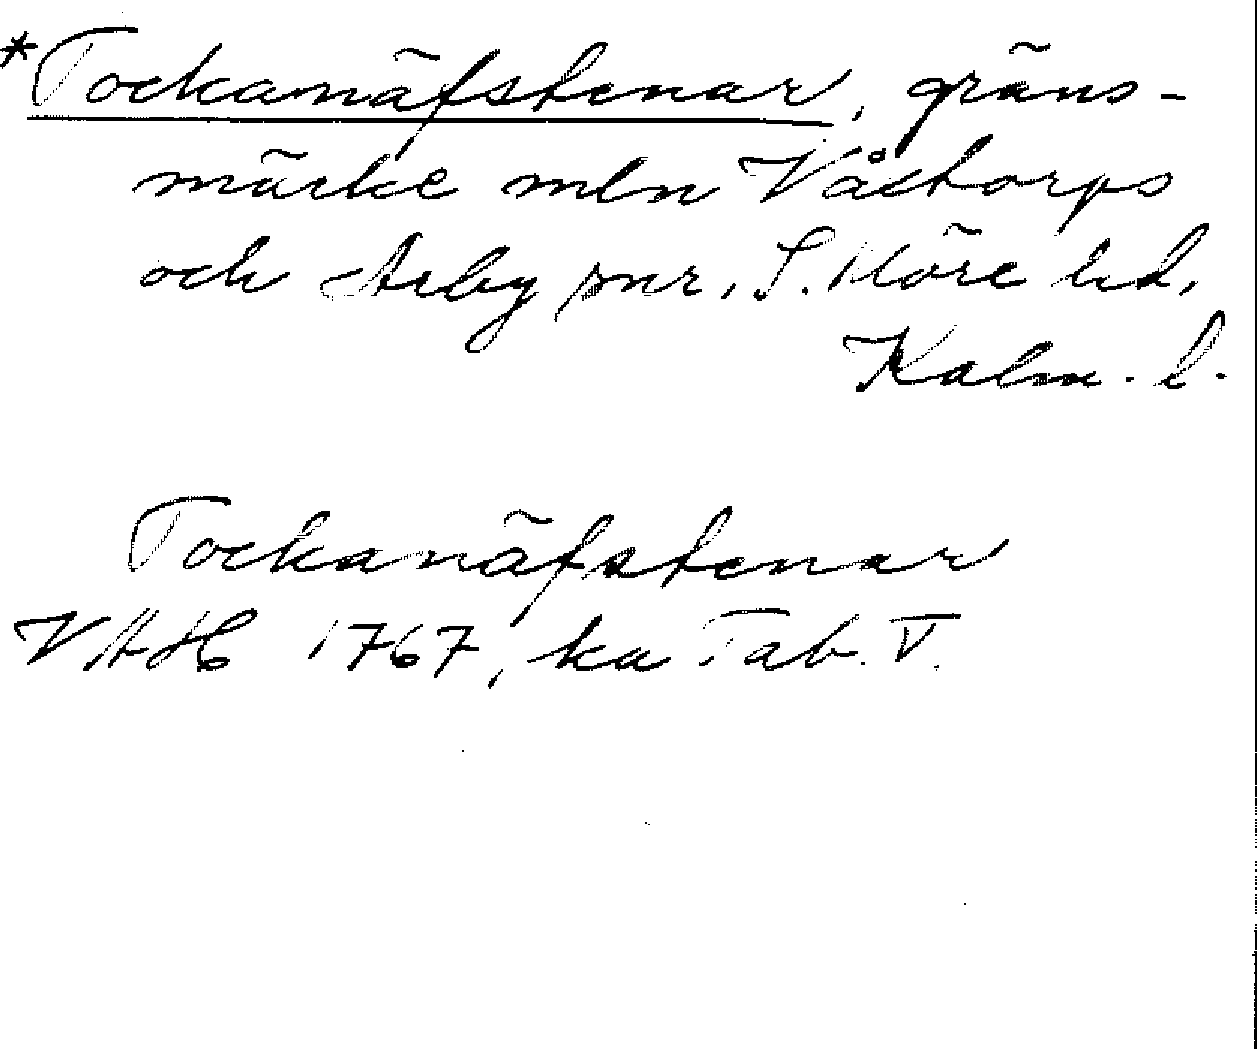 *Tockanäfstenar, gräns-
märke mln Våxtorps
och Arby snr, S. Möre hd,
Kalm. l.
Tockanäfstenar
VAH 1767, ka Tab. V.